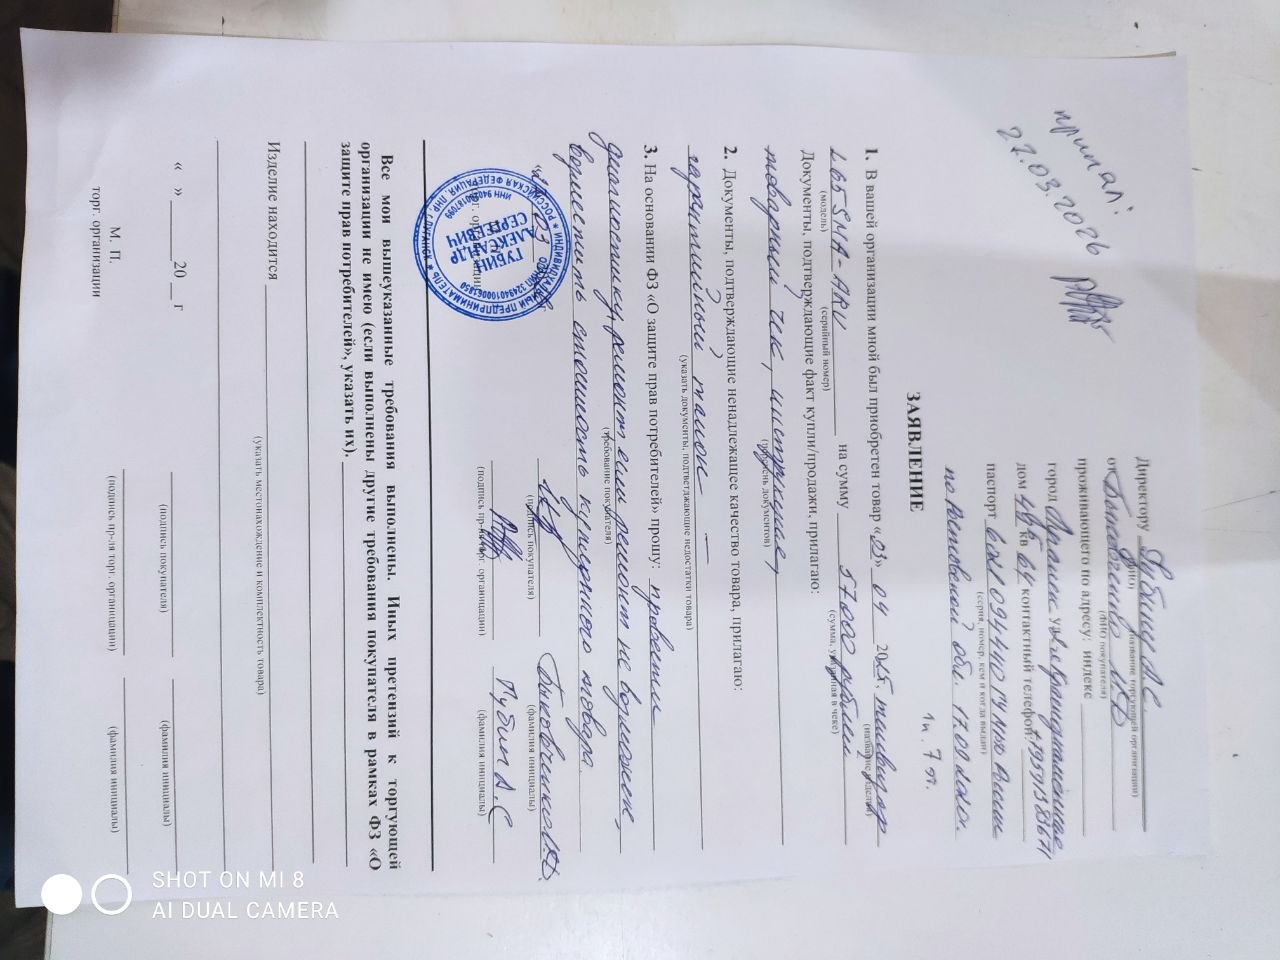 принял:
27.03.2026
Директору Губину А.С.
(ФИО) (название торгующей организации)
от
(ФИО покупателя)
проживающего по адресу: индекс
город ул. Краснознаменная
дом кв 64 контактный телефон:
паспорт ГУ МВД России
(серия, номер, кем и когда выдан)
по Ростовской обл. 17.09.2020.
1п. 7 эт.
ЗАЯВЛЕНИЕ
1. В вашей организации мной был приобретен товар «03» 04 2025. телевизор
(название изделия)
L65SMA-ARU на сумму 57.000 рублей
(модель) (серийный номер) (сумма, указанная в чеке)
Документы, подтверждающие факт купли/продажи, прилагаю:
товарный чек, инструкция,
(перечень документов)
2. Документы, подтверждающие ненадлежащее качество товара, прилагаю:
гарантийный талон —
(указать документы, подтверждающие недостатки товара)
3. На основании ФЗ «О защите прав потребителей» прошу: провести
диагностику, ремонт если ремонт не возможен,
(требование покупателя)
возместить стоимость купленного товара.
03
(подпись покупателя) (фамилия инициалы)
торг. организации Губин А.С
(подпись пр-ля торг. организации) (фамилия инициалы)
ИНДИВИДУАЛЬНЫЙ ПРЕДПРИНИМАТЕЛЬ
РОССИЙСКАЯ ФЕДЕРАЦИЯ, ЛНР, Г.ЛУГАНСК
ОГРНИП 324940100061850
ИНН 940200187099
ГУБИН
АЛЕКСАНДР
СЕРГЕЕВИЧ
Все мои вышеуказанные требования выполнены. Иных претензий к торгующей
организации не имею (если выполнены другие требования покупателя в рамках ФЗ «О
защите прав потребителей», указать их).
Изделие находится
(указать местонахождение и комплектность товара)
« » 20 г
(подпись покупателя) (фамилия инициалы)
М. П.
торг. организации
(подпись пр-ля торг. организации) (фамилия инициалы)
SHOT ON MI 8
AI DUAL CAMERA